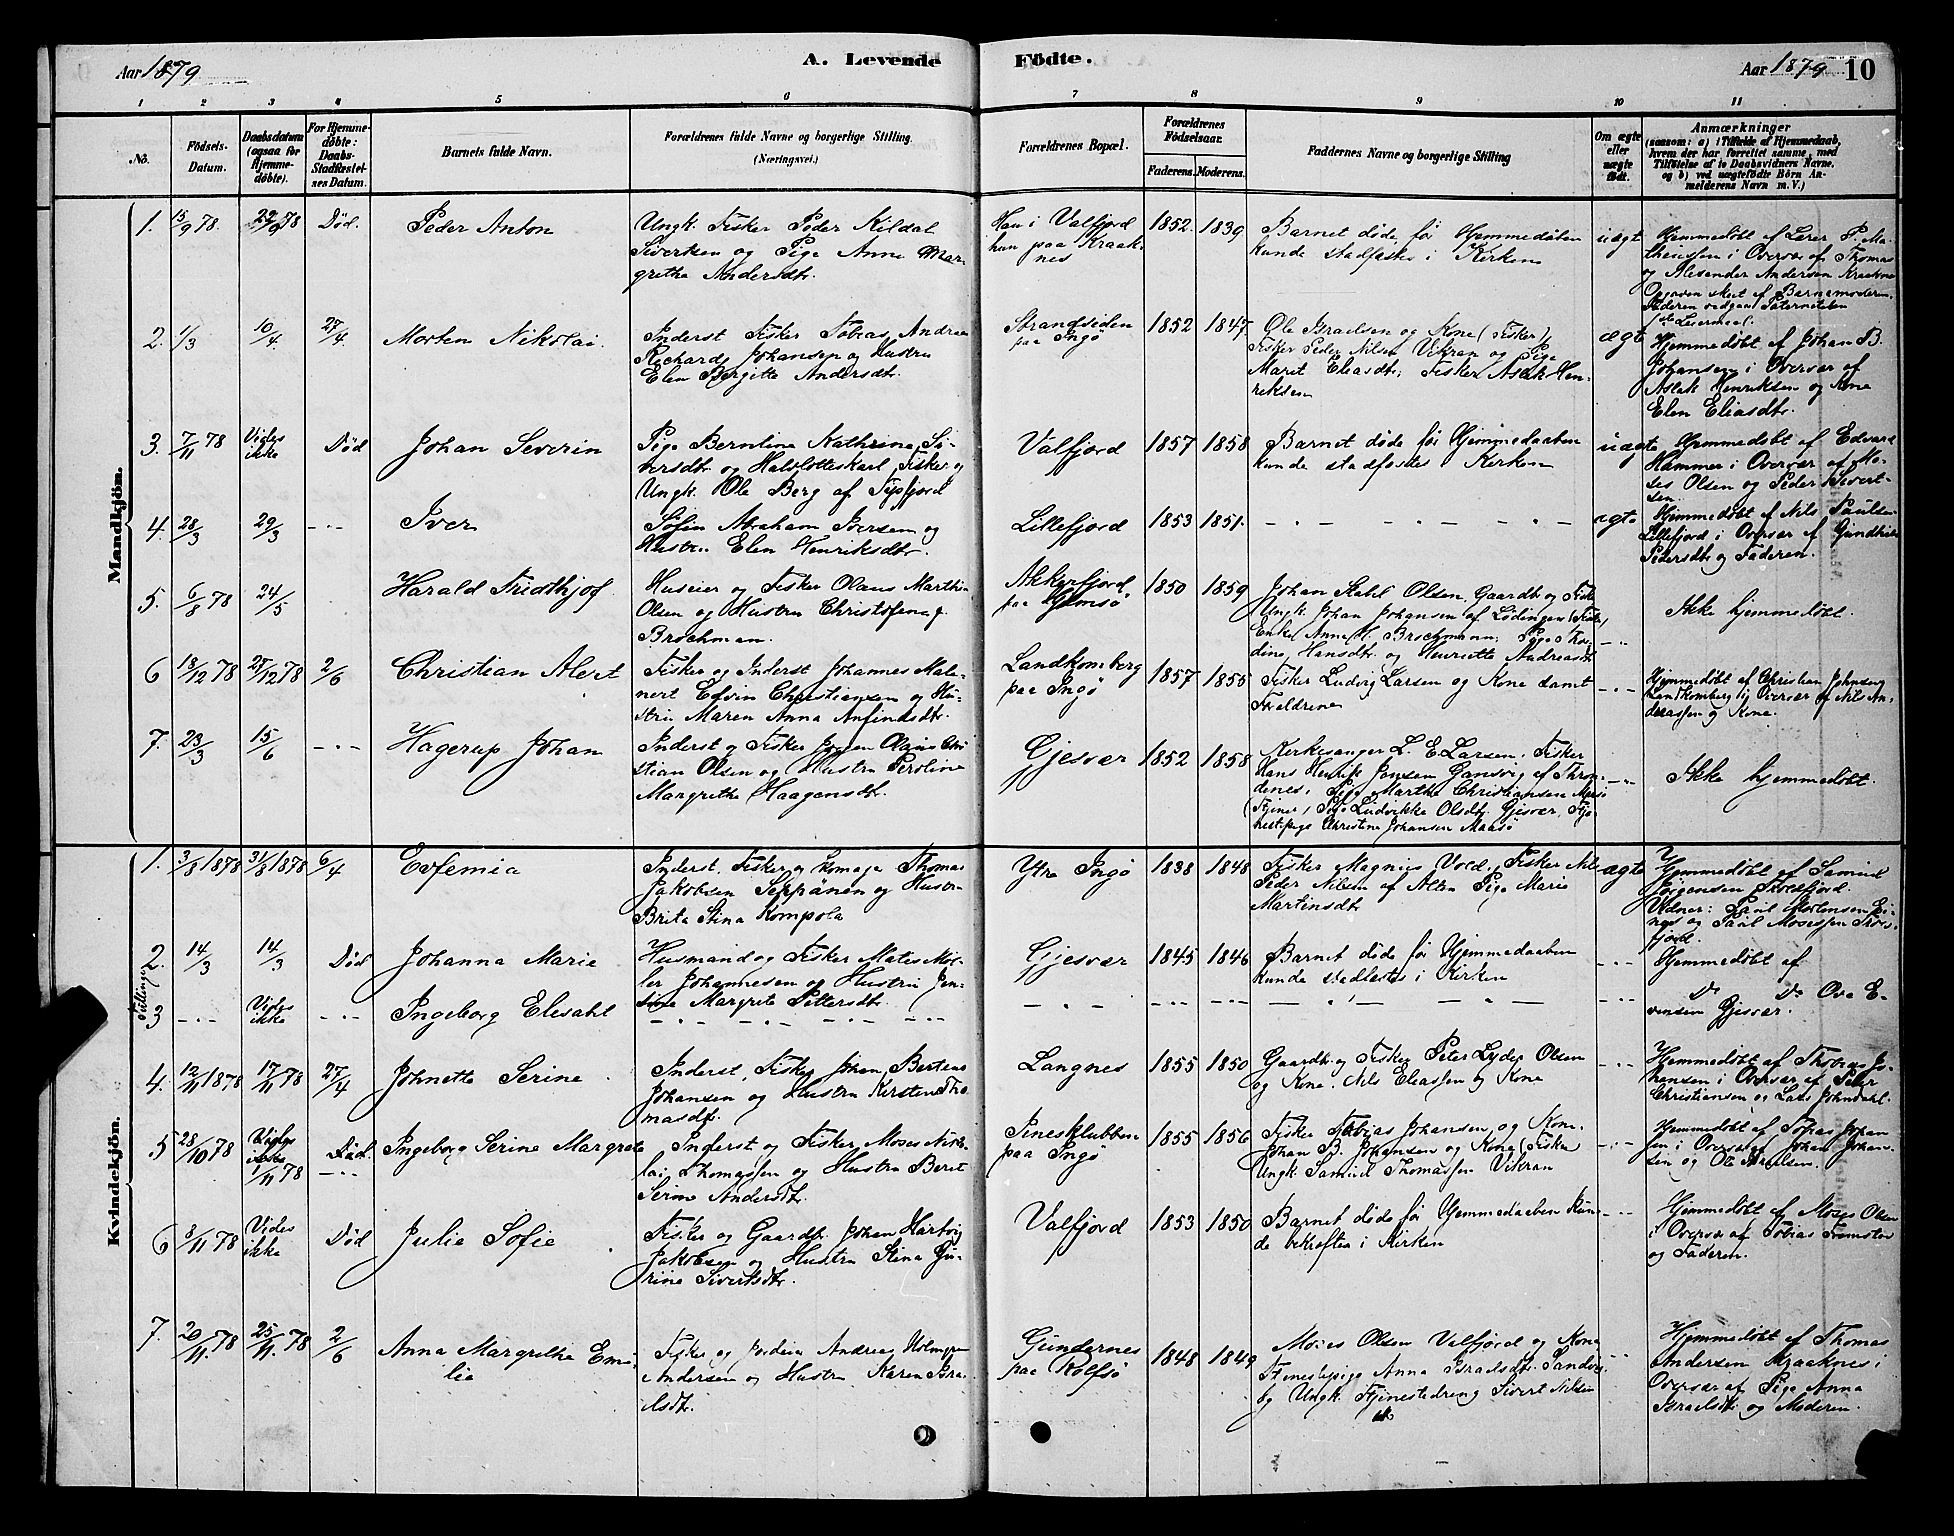 Aar 1879
A. Levende Födte.
Aar 1879 10
1 2 3 4 5 6 7 8 9 10 11
No.
Födsels-Datum.
Daabsdatum (ogsaa for Hjemme-döbte).
For Hjemme-döbte: Daabs-Stadfæstel-ses Datum.
Barnets fulde Navn.
Forældrenes fulde Navne og borgerlige Stilling.
(Næringsvei.)
Forældrenes Bopæl.
Forældrenes Födselsaar.
Faderens. Moderens.
Faddernes Navne og borgerlige Stilling
Om ægte eller uægte født.
Anmærkninger
(saasom: a) i Tilfælde af Hjemmedaab,
hvem der har forrettet samme, med
Tilföielse af to Daabsvidners Navne.
og b) ved uægtefödte Börn An-
melderens Navn m. V.)
Mandkjön.
1. 15/9 78. 22/9 78 Död. Peder Anton
Ungk. Fisker Peder Kildal
Sivertsen og Pige Anne Mar-
grethe Andersdtr.
Han i Valfjord
hun paa Kraak-
nes
1852. 1839
Barnet döde för Hjemmedaaben
kunde stadfæstes i Kirken
uægt
Hjemmedöbt af Lærer P. Ma-
theussen i Overvær af Thomas
og Alexander Andersen Kraaknes
Opgaven skeet af Barnemoderen.
2. 1/3 10/4 27/4 Morten Nikolai
Inderst Fisker Tobias Andreas
Richard Johansen og Hustru
Elen Bergitte Andersdtr.
Strandsiden
paa Ingö
1852 1847
Ole Israelsen og Kone (Fisker)
Fisker Peder Nilsen Vikran og Pige
Marit Eliasdtr, Fisker Aslak Hen-
riksen
ægte
Hjemmedöbt af Johan B.
Johansen i Overvær af
Aslak Henriksen og Kone
Elen Eliasdtr.
3. 7/11 78 Vides ikke Död Johan Severin
Pige Berntine Kathrine Si-
versdtr og Halvlotteskarl, Fisker og
Ungk. Ole Berg af
Valfjord 1857 1858
Barnet döde för Hjemmedaaben
kunde stadfæstes i Kirken
uægte
Hjemmedöbt af Edvard
Hammer i Overvær af Mo-
ses Olsen og Peder Sivert-
sen.
4. 28/3 29/3 -"- Iver
Söfin Abraham Iversen og
Hustru Elen Henriksdtr.
Lillefjord 1853 1851.
- " - " - " -
ægte
Hjemmedöbt af Nils Paulsen
Lillefjord i Overvær af
Pedersdtr og Faderen.
5. 6/8 78 24/5 Harald Fridthjof
Huseier og Fisker Olaus Marthin
Olsen og Hustru Christofena f.
Brochman.
Akkerfjord
paa
1850 1859
Johan Olsen, Gaardb. og Fisk
Ungk. Johan Johansen af Lödingen (Fisker)
Enke Anne M. Brochmann, Pige Tho-
dine Hansdtr. og Henriette Andreasdtr
-"-
Ikke hjemmedöbt.
6 18/12 78 27/12 78 2/6 Christian Alert
Fisker og Inderst Johannes Male-
nert Edvin Christiansen og Hu-
stru Maren Anna Anfindsdtr.
Landkomberg
paa Ingö
1857 1855
Fisker Ludvig Larsen og Kone samt
Forældrene
-"-
Hjemmedöbt af Christian Johnsen
Landkomberg i Overvær af Nils An-
dreassen og Kone.
7. 23/3 15/6 -"- Hagerup Johan
Inderst og Fisker Olaus Chri-
stian Olsen og Hustru Peroline
Margrethe Haagensdtr.
Gjesvær 1852 1858
Kirkesanger L. E. Larsen. Fisker
Hans Henrik Jansen Gansvig af Thron-
denes, Pige Marthe Christiansen Maasö
(Tjener) Pige Ludvikke Olsdtr. Gjesvær, Tje-
nestepige Christine Johansen Maasö
-"-
Ikke hjemmedöbt.
Kvindekjön.
1. 3/8 1878 31/8 1878 6/4 Eufemia
Inderst, Fisker og Thomas
Jakobsen Seppänen og Hustru
Brita Stina Kompola
Ytre Ingö 1838 1848
Fisker Magnus Vold, Fisker Nils
Peder Nilsen af Alten Pige Marie
Martinsdtr
ægte
Hjemmedöbt af Samuel
Jörgensen
Vidner: Paul Mortensen
og Paul Mosessen
Tvillinger
2. 14/3 14/3 Död Johanna Marie
Husmand og Fisker Mates Möl-
ler Johannesen og Hustru Jen-
sine Margrete Pettersdtr.
Gjesvær 1845 1846
Barnet döde för Hjemmedaaben
kunde stadfæstes i Kirken
-"-
Hjemmedöbt af
3 -"- Vides ikke -"- Ingeborg Elesabt
- " - " - " -
Do Do Ove E-
vensen Gjesvær.
4. 12/11 1878 17/11 78 27/4 Johnette Serine
Inderst, Fisker Johan Bertens
Johansen og Hustru Kirsten Tho-
masdtr.
Langnes 1855 1850
Gaardb. og Fisker Peter Lyder Olsen
og Kone. Nils Eliassen og Kone
-"-
Hjemmedöbt af Thobias Jo-
hansen i Overvær af Peter
Christiansen og Lars Johndahl.
5 28/10 78 Vides ikke 1/11 78 Död. -"- Ingeborg Serine Margrete
Inderst og Fisker Moses Niko-
lai Thomassen og Hustru Beret
Serine Andersdtr.
paa Ingö
1855 1856
Fisker Tobias Johansen og Kone.
Johan B. Johansen og Kone (Fisker
Ungk. Samuel Thomassen Vikran
-"-
Hjemmedöbt af Tobias Johan-
sen i Overvær af Johan Johan-
sen og Ole Israelsen.
6 8/11 78 Vides ikke Död Julie Sofie
Fisker og Gaardb. Johan Hartvig
Jakobsen og Hustru Stina Gu-
rine Sivertsdtr.
Valfjord 1853 1850
Barnet döde för Hjemmedaaben kun-
de bekræftes i Kirken
-"-
Hjemmedöbt af Moses Olsen
i Overvær af Tobias
og Faderen.
7. 20/11 78 25/11 78 2/6 Anna Margrethe Emi-
lie
Fisker og Jordeier Andreas Holmgren
Andersen og Hustru Karen Isra-
elsdtr.
Gundernes
paa Rolfsö
1848 1849
Moses Olsen Valfjord og Kone
Tjenestepige Anna Israelsdtr.
og Ungk. Tjenestedreng Sivert Nilsen
-"-
Hjemmedöbt af Thomas
Andersen Kraaknes i
Overvær af Pige Anna
Israelsdtr og Moderen.